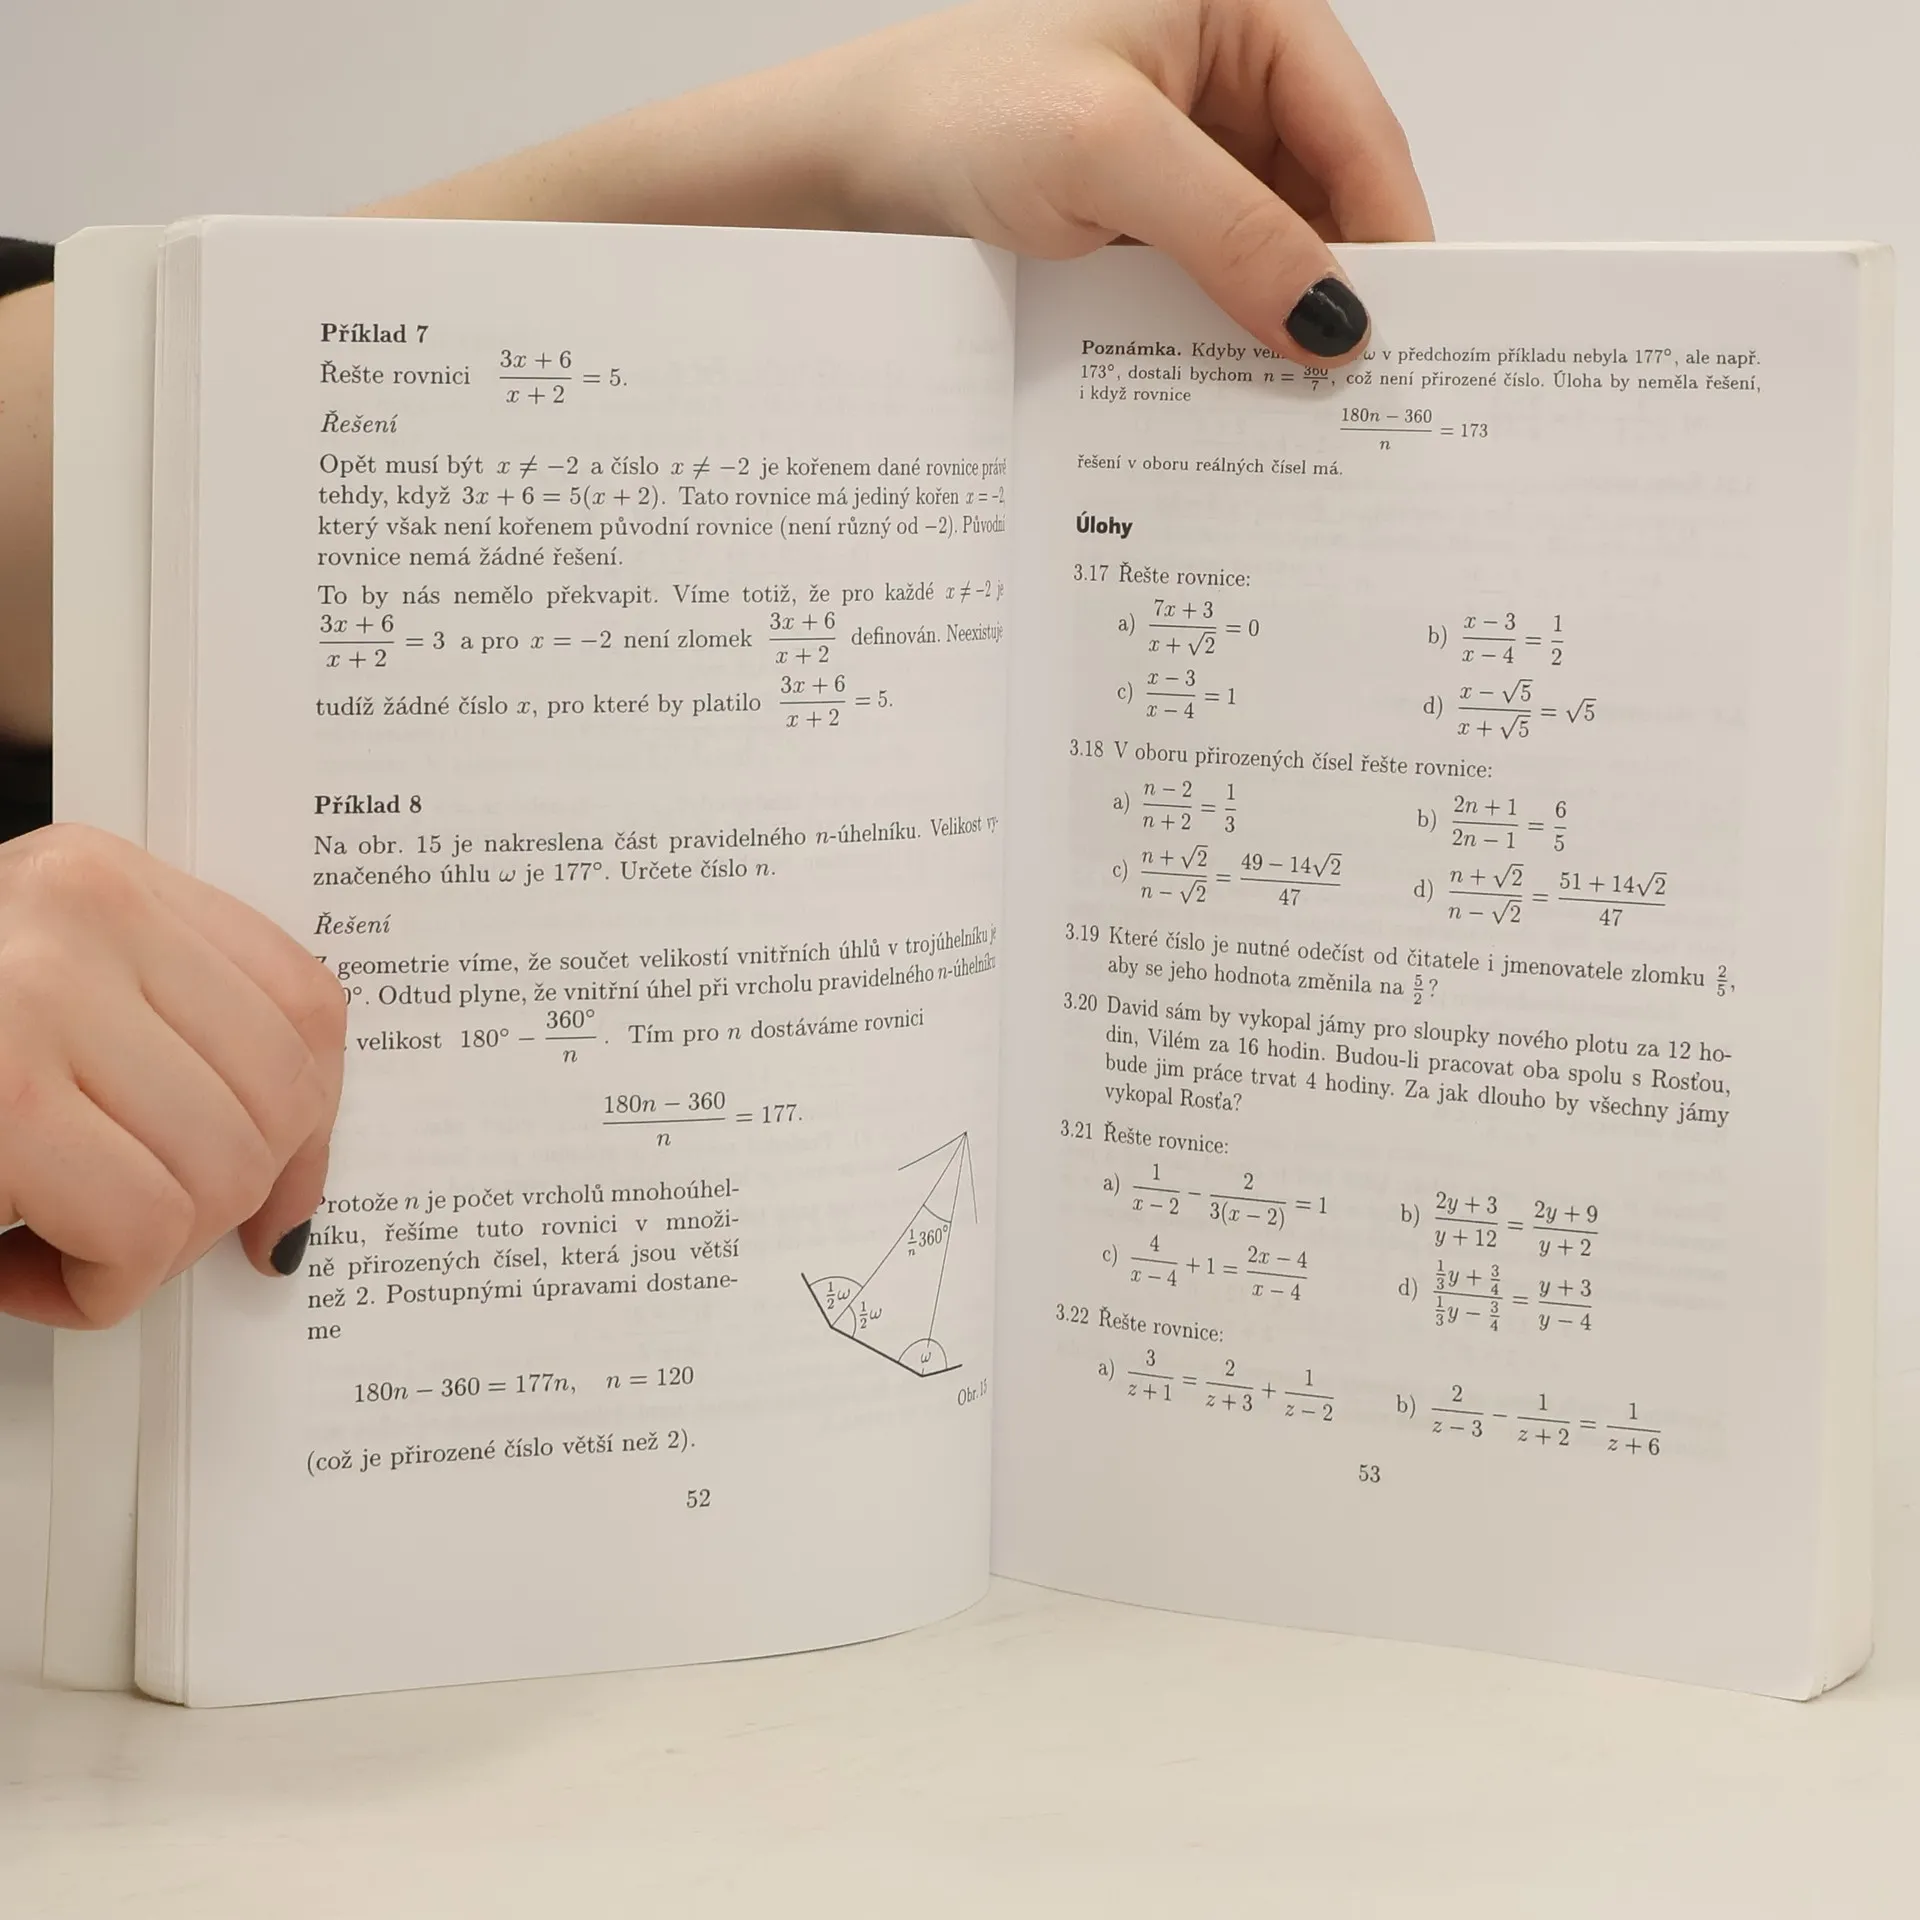 Příklad 7
Řešte rovnici (3x + 6)/(x + 2) = 5.
Řešení
Opět musí být x ≠ −2 a číslo x ≠ −2 je kořenem dané rovnice právě
tehdy, když 3x + 6 = 5(x + 2). Tato rovnice má jediný kořen x = −2,
který však není kořenem původní rovnice (není různý od −2). Původní
rovnice nemá žádné řešení.
To by nás nemělo překvapit. Víme totiž, že pro každé x ≠ −2 je
(3x + 6)/(x + 2) = 3 a pro x = −2 není zlomek (3x + 6)/(x + 2) definován. Neexistuje
tudíž žádné číslo x, pro které by platilo (3x + 6)/(x + 2) = 5.
Příklad 8
Na obr. 15 je nakreslena část pravidelného n-úhelníku. Velikost vy-
značeného úhlu ω je 177°. Určete číslo n.
Řešení
geometrie víme, že součet velikostí vnitřních úhlů v trojúhelníku je
0°. Odtud plyne, že vnitřní úhel při vrcholu pravidelného n-úhelníku
velikost 180° − 360°/n. Tím pro n dostáváme rovnici
(180n − 360)/n = 177.
Protože n je počet vrcholů mnohoúhel-
níku, řešíme tuto rovnici v množi-
ně přirozených čísel, která jsou větší
než 2. Postupnými úpravami dostane-
me
180n − 360 = 177n, n = 120
(což je přirozené číslo větší než 2).
1/n 360°
1/2 ω
1/2 ω
ω
Obr. 15
52
Poznámka. Kdyby ω v předchozím příkladu nebyla 177°, ale např.
173°, dostali bychom n = 360/7, což není přirozené číslo. Úloha by neměla řešení,
i když rovnice
(180n − 360)/n = 173
řešení v oboru reálných čísel má.
Úlohy
3.17 Řešte rovnice:
a) (7x + 3)/(x + √2) = 0 b) (x − 3)/(x − 4) = 1/2
c) (x − 3)/(x − 4) = 1 d) (x − √5)/(x + √5) = √5
3.18 V oboru přirozených čísel řešte rovnice:
a) (n − 2)/(n + 2) = 1/3 b) (2n + 1)/(2n − 1) = 6/5
c) (n + √2)/(n − √2) = (49 − 14√2)/47 d) (n + √2)/(n − √2) = (51 + 14√2)/47
3.19 Které číslo je nutné odečíst od čitatele i jmenovatele zlomku 2/5,
aby se jeho hodnota změnila na 5/2?
3.20 David sám by vykopal jámy pro sloupky nového plotu za 12 ho-
din, Vilém za 16 hodin. Budou-li pracovat oba spolu s Rosťou,
bude jim práce trvat 4 hodiny. Za jak dlouho by všechny jámy
vykopal Rosťa?
3.21 Řešte rovnice:
a) 1/(x − 2) − 2/(3(x − 2)) = 1 b) (2y + 3)/(y + 12) = (2y + 9)/(y + 2)
c) 4/(x − 4) + 1 = (2x − 4)/(x − 4) d) (1/3 y + 3/4)/(1/3 y − 3/4) = (y + 3)/(y − 4)
3.22 Řešte rovnice:
a) 3/(z + 1) = 2/(z + 3) + 1/(z − 2) b) 2/(z − 3) − 1/(z + 2) = 1/(z + 6)
53